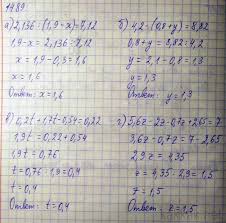 1489
а) 2,136 : (1,9 - x) = 7,12
1,9 - x = 2,136 : 7,12
x = 1,9 - 0,3 = 1,6
x = 1,6
Ответ: x = 1,6
б) 4,2 · (0,8 + y) = 8,82
0,8 + y = 8,82 : 4,2
y = 2,1 - 0,8 = 1,3
y = 1,3
Ответ: y = 1,3
в) 0,2t + 1,7t - 0,54 = 0,22
1,9t = 0,22 + 0,54
1,9t = 0,76
t = 0,76 : 1,9 = 0,4
t = 0,4
Ответ: t = 0,4
г) 5,6z - 2z - 0,7z + 2,65 = 7
3,6z - 0,7z = 7 - 2,65
2,9z = 4,35
z = 4,35 : 2,9 = 1,5
z = 1,5
Ответ: z = 1,5